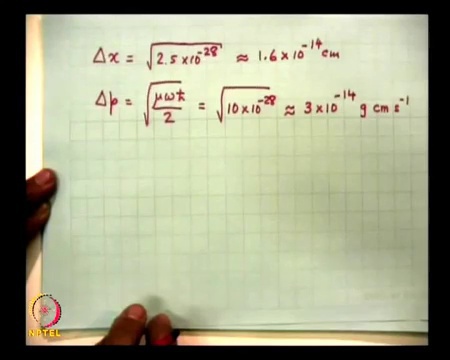 Δx = √2.5×10⁻²⁸ ≈ 1.6×10⁻¹⁴ cm
Δp = √μωħ/2 = √10×10⁻²⁸ ≈ 3×10⁻¹⁴ g cm s⁻¹
NPTEL